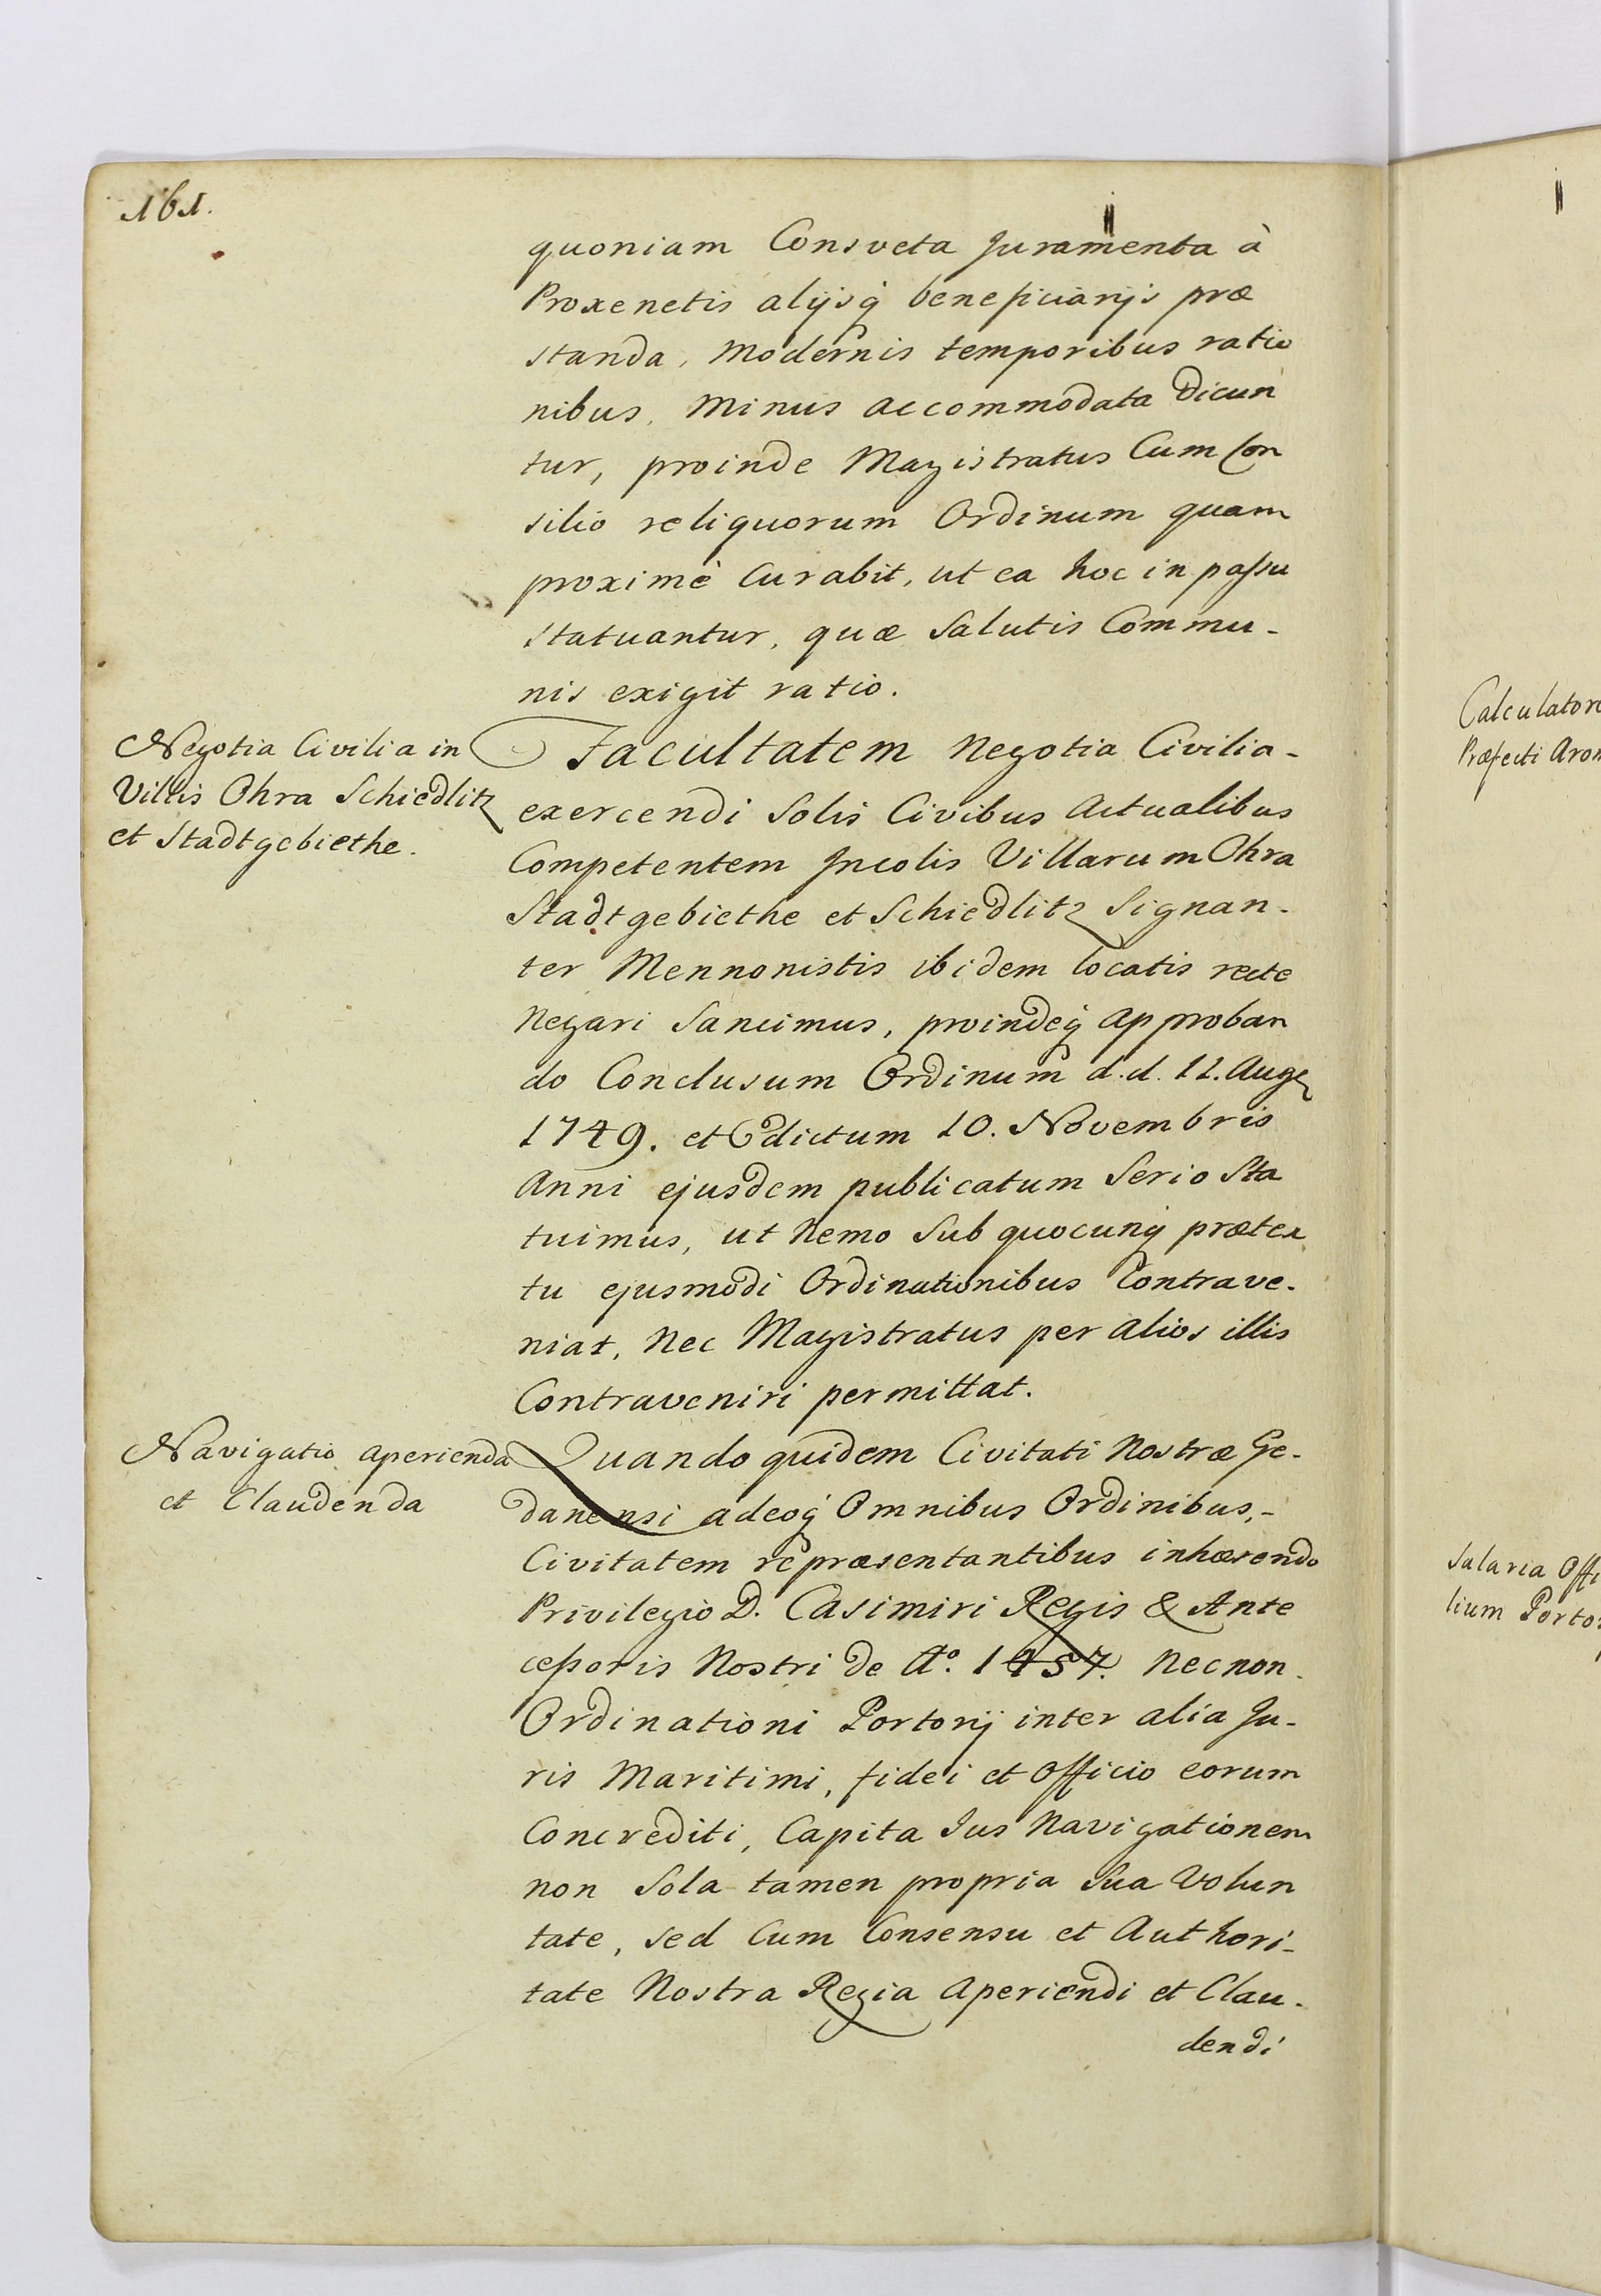 161.
quoniam Consveta Juramenta à
Proxenetis alijsq́ beneficiarijs præ
standa, Modernis temporibus ratio
nibus, Minus accommodata Dicun
tur, proinde Magistratus Cum Con
silio reliquorum Ordinum quam
proximè Curabit, ut ea hoc in passu
statuantur, quæ Salutis Commu-
nis exigit ratio.
Negotia Civilia in
Villis Ohra Schiedlitz
et Stadtgebiethe.
Facultatem Negotia Civilia-
exercendi Solis Civibus Actualibus
Competentem Incolis Villarum Ohra
Stadtgebiethe et Schiedlitz Signan-
ter Mennonistis ibidem locatis recte
Negari Sancimus, proindeq́ approban
do Conclusum Ordinum d.d. 11. Aug
1749. et Edictum 10. Novembris
Anni ejusdem publicatum Serio Sta
tuimus, ut Nemo Sub quocunq́ prætex
tu ejusmodi Ordinationibus Contrave-
niat, Nec Magistratus per alios illis
Contraveniri permittat.
Navigatio aperienda
et Claudenda
Quando quidem Civitati Nostræ Ge-
danensi adeoq́ Omnibus Ordinibus,-
Civitatem repræsentantibus inhærendo
Privilegio D. Casimiri Regis & Ante
cessoris Nostri de Aº. 1457. Necnon
Ordinationi Portorij inter alia Ju-
ris Maritimi, fidei et Officio eorum
Concrediti, Capita Jus Navigationem
non Sola tamen propria Sua Volun
tate, sed Cum Consensu et Authori-
tate Nostra Regia Aperiendi et Clau-
dendi
Calculator
Præfecti
Salaria Offi
lium Porto